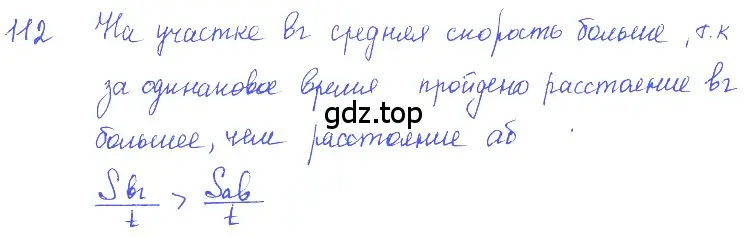 112 На участке вг средняя скорость больше, т.к
за одинаковое время пройдено расстояние вг
gdz.top
большее, чем расстояние аб
Sвг/t > Sаб/t